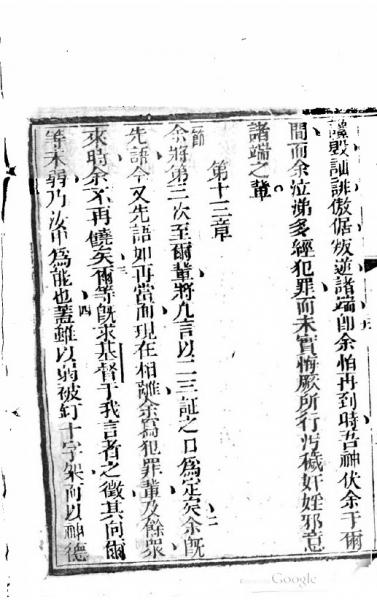 毀訕誹傲倨叛逆諸端卽余怕再到時吾神伏余于爾
間而余泣涕多經犯罪而未實悔厥所行汚穢奸婬邪意
諸端之輩
第十三章
一節
余將第三次至爾輩將凡言以二三証之口爲定矣余旣
二
先語今又先語如再當面現在相離余爲犯罪輩及餘衆
來時余不再饒矣爾等旣求基督于我言者之徵其向爾
三
等未弱乃汝中爲能也蓋雖以弱被釘十字架而以神德
四
Google